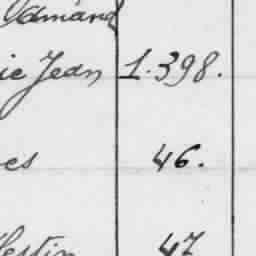 Edmand
ie Jean 1.398.
es 46.
lestin 47